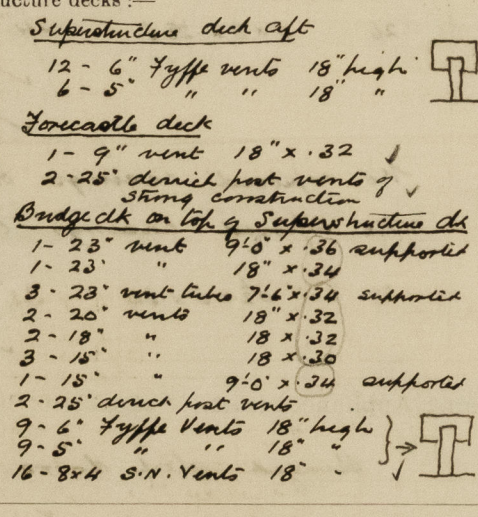 ucture decks :—
Superstructure deck aft
12 - 6" Fyffe vents 18" high
6 - 5" " " 18" "
Forecastle deck
1 - 9" vent 18" x .32 ✓
2 - 25" derrick post vents of ✓
strong construction
Bridge dk on top of Superstructure dk
1 - 23" vent 9'-0" x .36 supported
1 - 23" " 18" x .34
3 - 23" vent tubes 7'-6" x .34 supported
2 - 20" vents 18" x .32
2 - 18" " 18 x .32
3 - 15" " 18 x .30
1 - 15" " 9'-0" x .34 supported
2 - 25" derrick post vents
9 - 6" Fyffe Vents 18" high
9 - 5" " " 18" "
16 - 8x4 S.N. Vents 18" - ✓